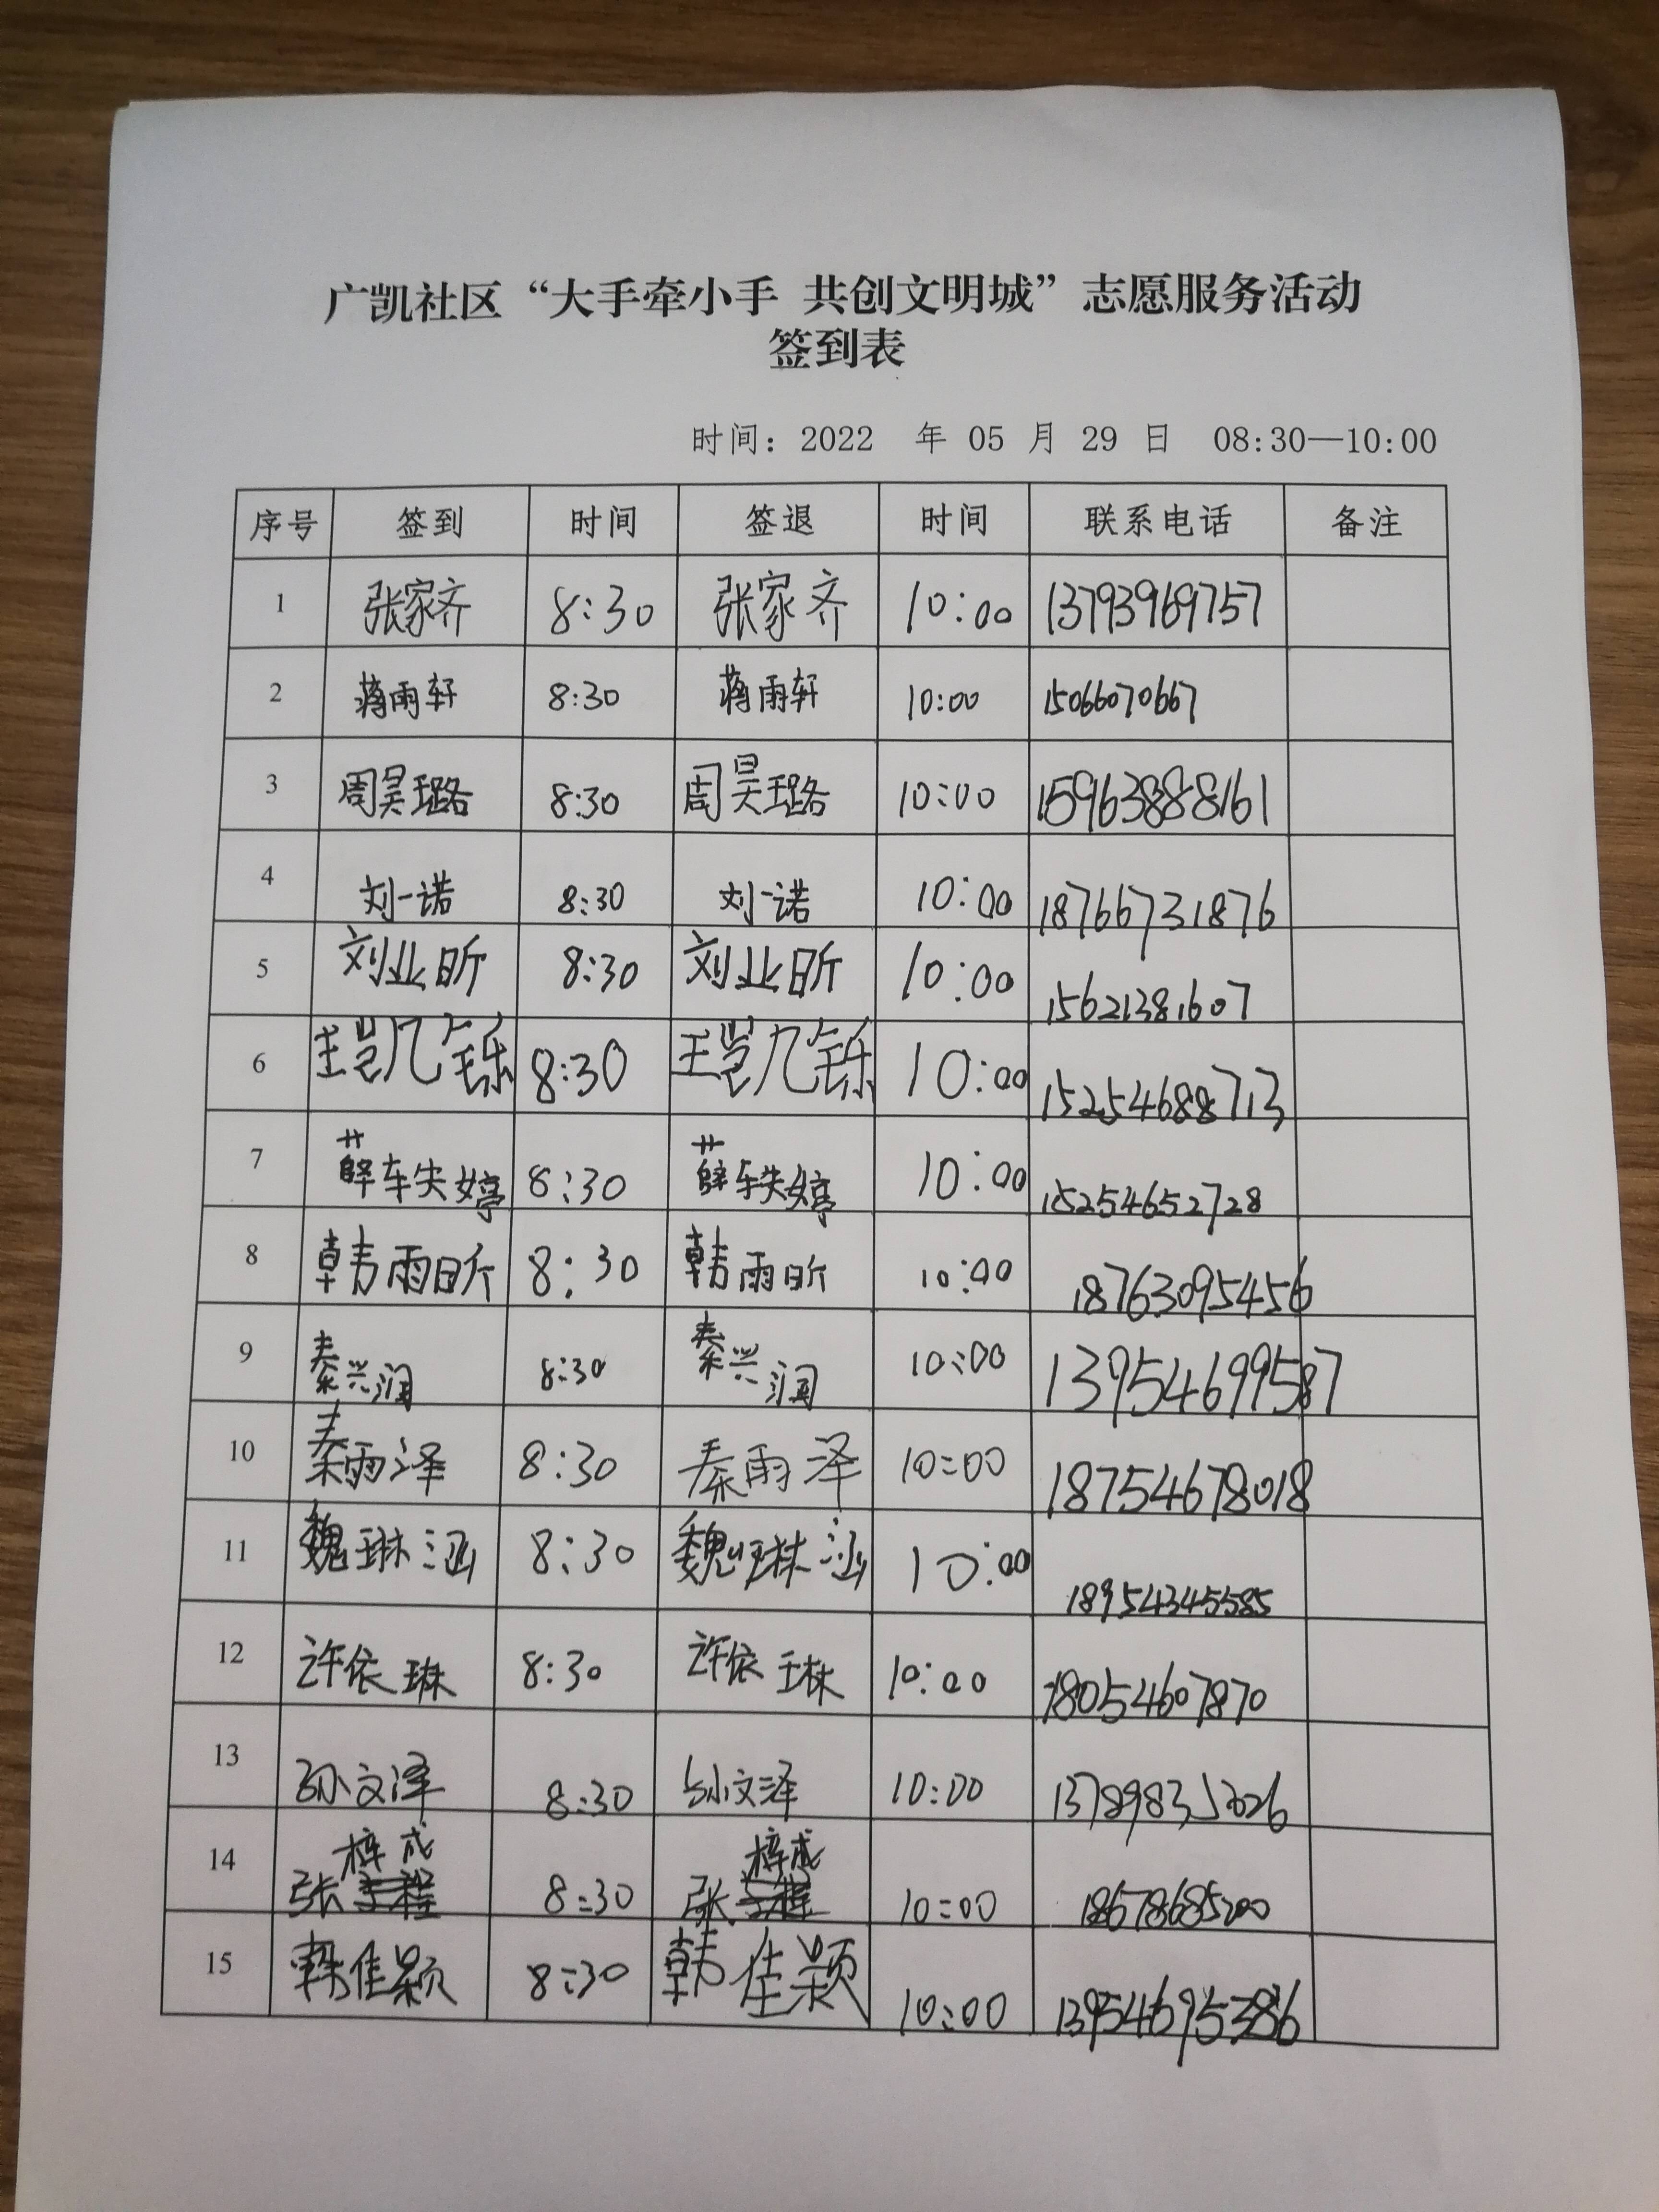 广凯社区“大手牵小手 共创文明城”志愿服务活动
签到表
时间：2022 年 05 月 29 日 08:30—10:00
序号 签到 时间 签退 时间 联系电话 备注
1 张家齐 8:30 张家齐 10:00 13793969757
2 蒋雨轩 8:30 蒋雨轩 10:00 15066070667
3 周昊璐 8:30 周昊璐 10:00 15963888161
4 刘一诺 8:30 刘一诺 10:00 18766731876
5 刘业昕 8:30 刘业昕 10:00 15621381607
6 王凯铄 8:30 王凯铄 10:00 15254688713
7 薛轶婷 8:30 薛轶婷 10:00 15254652728
8 韩雨昕 8:30 韩雨昕 10:00 18763095456
9 秦兴润 8:30 秦兴润 10:00 13954699587
10 秦雨泽 8:30 秦雨泽 10:00 18754678018
11 魏琳涵 8:30 魏琳涵 10:00 18954345585
12 许依琳 8:30 许依琳 10:00 18054607870
13 孙文泽 8:30 孙文泽 10:00 13789835026
14 张梓成 8:30 张梓成 10:00 18678685200
15 韩佳颖 8:30 韩佳颖 10:00